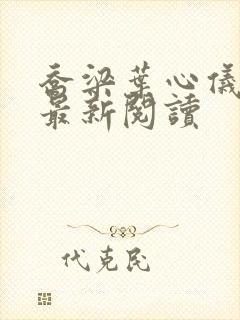 喬梁葉心儀
最新閱讀
代克民